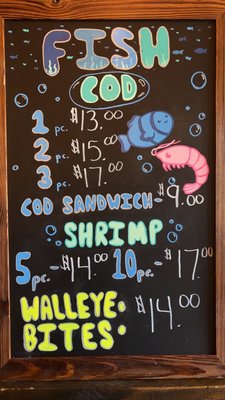 FISH
COD
1 pc. $13.00
2 pc. $15.00
3 pc. $17.00
COD SANDWICH - $9.00
SHRIMP
5 pc. - $14.00 10 pc. - $17.00
WALLEYE
BITES: $14.00